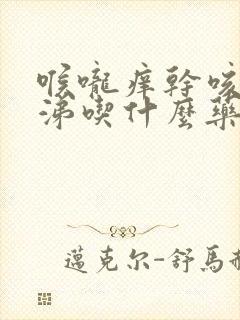 喉嚨痒幹咳
涕喫什麼藥
邁克尔-舒馬赫